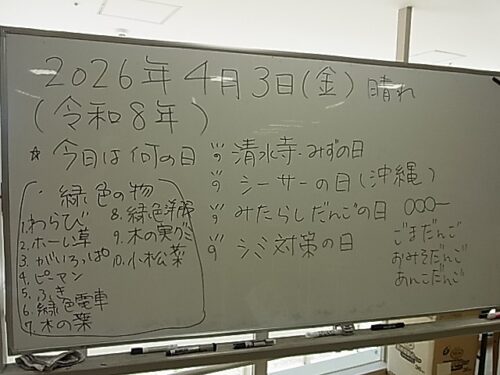 2026年4月3日(金) 晴れ
(令和8年)
☆ 今日は何の日 〃 清水寺・みずの日
〃 シーサーの日(沖縄)
〃 みたらしだんごの日 〇〇〇ー
〃 シミ対策の日
ごまだんご
おみそだんご
あんこだんご
・緑色の物
1. わらび
2. ホーレン草
3. がいろっぱ
4. ピーマン
5. ふき
6. 緑色電車
7. 木の葉
8. 緑色洋服
9. 木の実グミ
10. 小松菜